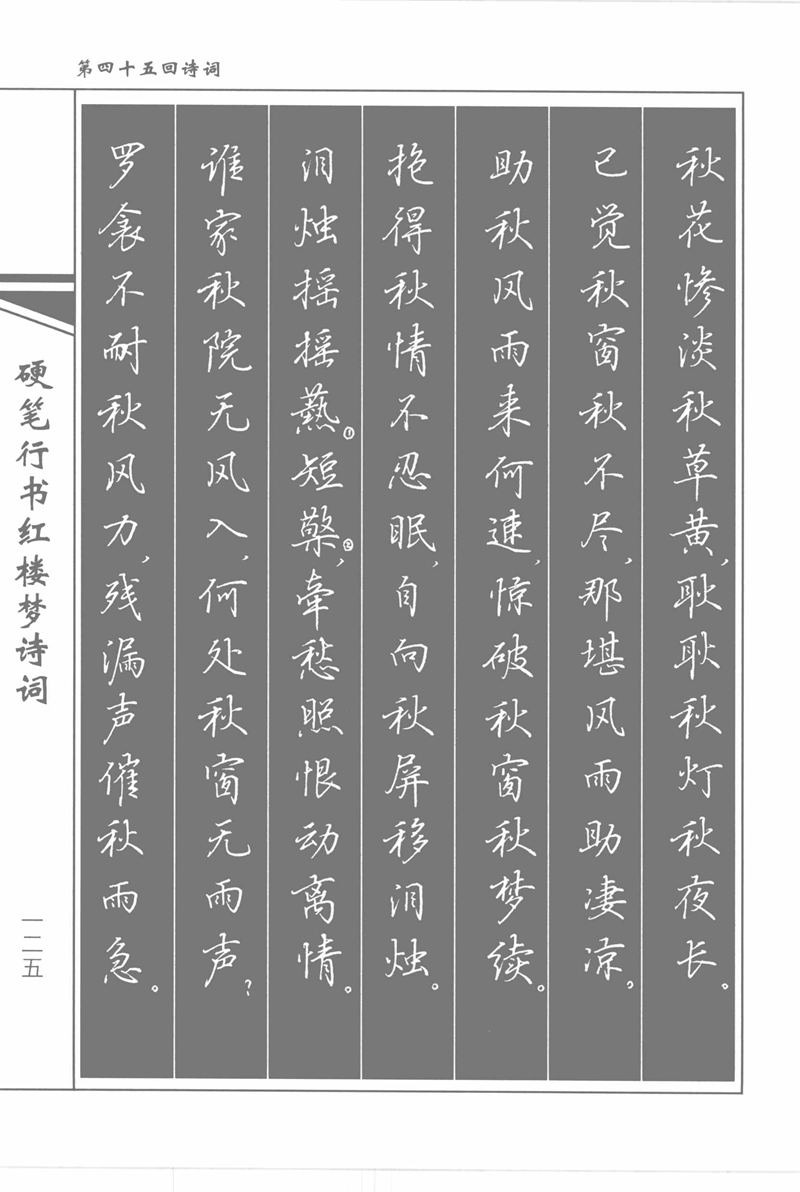 第四十五回诗词
秋花惨淡秋草黄，耿耿秋灯秋夜长。
已觉秋窗秋不尽，那堪风雨助凄凉。
助秋风雨来何速，惊破秋窗秋梦续。
抱得秋情不忍眠，自向秋屏移泪烛。
泪烛摇摇爇①短檠②，牵愁照恨动离情。
谁家秋院无风入，何处秋窗无雨声？
罗衾不耐秋风力，残漏声催秋雨急。
硬笔行书红楼梦诗词
一二五